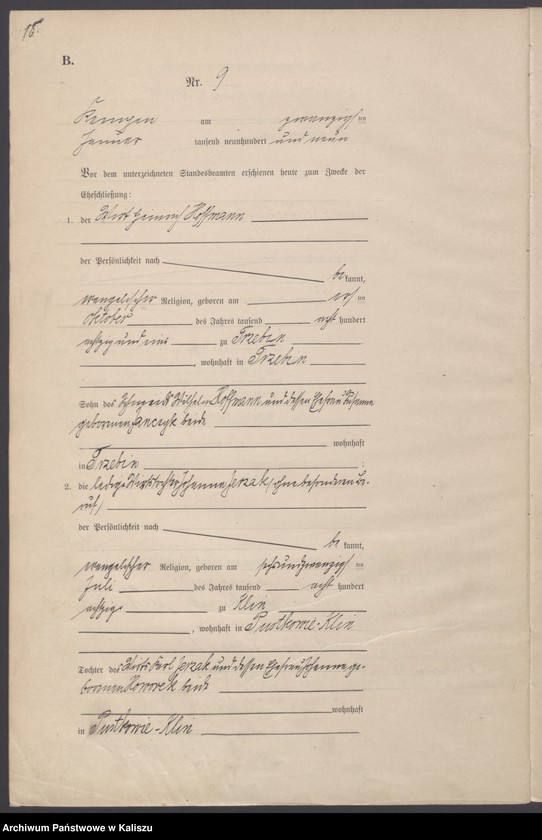 18.
B.
Nr. 9
Kempen am zwanzigsten
Januar tausend neunhundert und neun
Vor dem unterzeichneten Standesbeamten erschienen heute zum Zwecke der
Eheschließung:
1. der Wirt Heinrich Hoffmann
der Persönlichkeit nach
be kannt,
evangelischer Religion, geboren am ersten
Oktober des Jahres tausend acht hundert
achtzig und eins zu Trzebin
, wohnhaft in Trzebin
Sohn des Wilhelm Hoffmann und dessen Ehefrau Susanna
geborenen beide
wohnhaft
in Trzebin ;
2. die ledige Wirtstochter Johanna Jerzak, ohne besonderen Be-
ruf,
der Persönlichkeit nach
be kannt,
evangelischer Religion, geboren am sechsundzwanzigsten
Juli des Jahres tausend acht hundert
achtzig zu Klin
, wohnhaft in Pustkowie-Klin
Tochter des Wirts Karl Jerzak und dessen Ehefrau Johanna ge-
borenen beide
wohnhaft
in Pustkowie-Klin
Archiwum Państwowe w Kaliszu